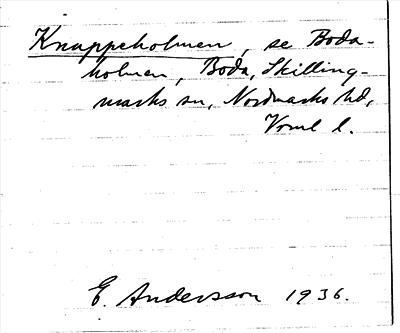 Knappeholmen, se Boda-
holmen, Boda, Skilling-
marks sn, Nordmarks hd,
Vrml l.
E. Andersson 1936.